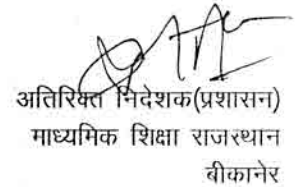 अतिरिक्त निदेशक(प्रशासन)
माध्यमिक शिक्षा राजस्थान
बीकानेर